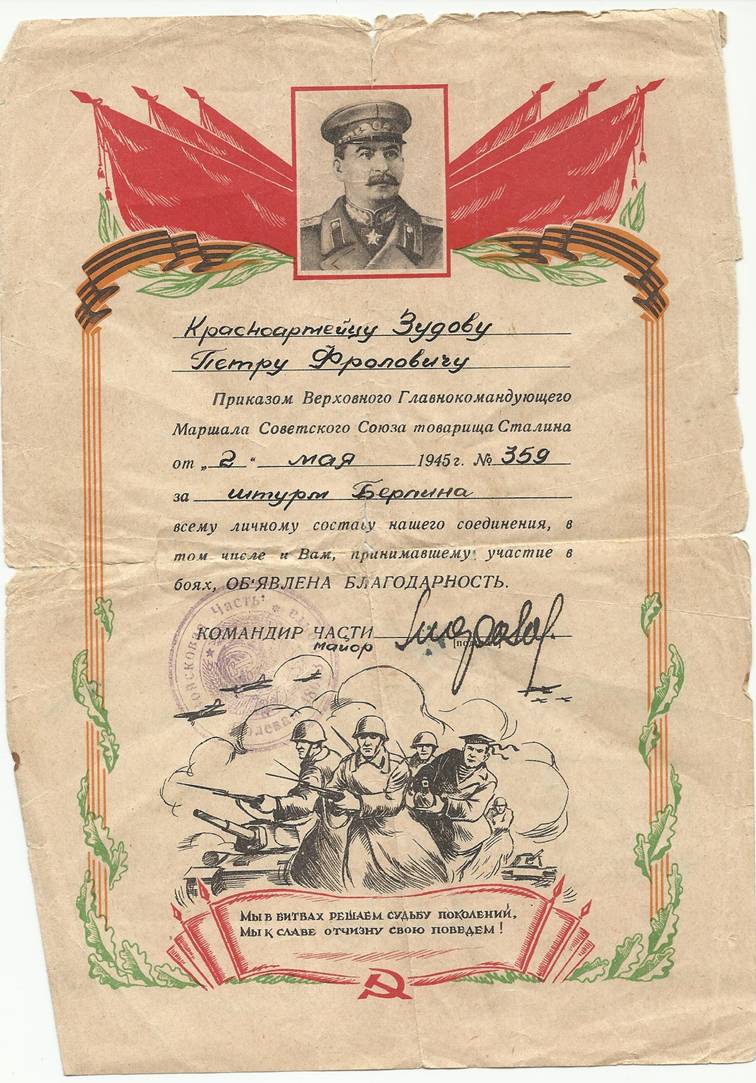 Красноармейцу Зудову
Петру Фроловичу
Приказом Верховного Главнокомандующего
Маршала Советского Союза товарища Сталина
от „2“ мая 1945 г. № 359
за штурм Берлина
всему личному составу нашего соединения, в
том числе и Вам, принимавшему участие в
боях, ОБ'ЯВЛЕНА БЛАГОДАРНОСТЬ.
КОМАНДИР ЧАСТИ
майор
Войсковая часть
Мы в битвах решаем судьбу поколений,
Мы к славе отчизну свою поведем!